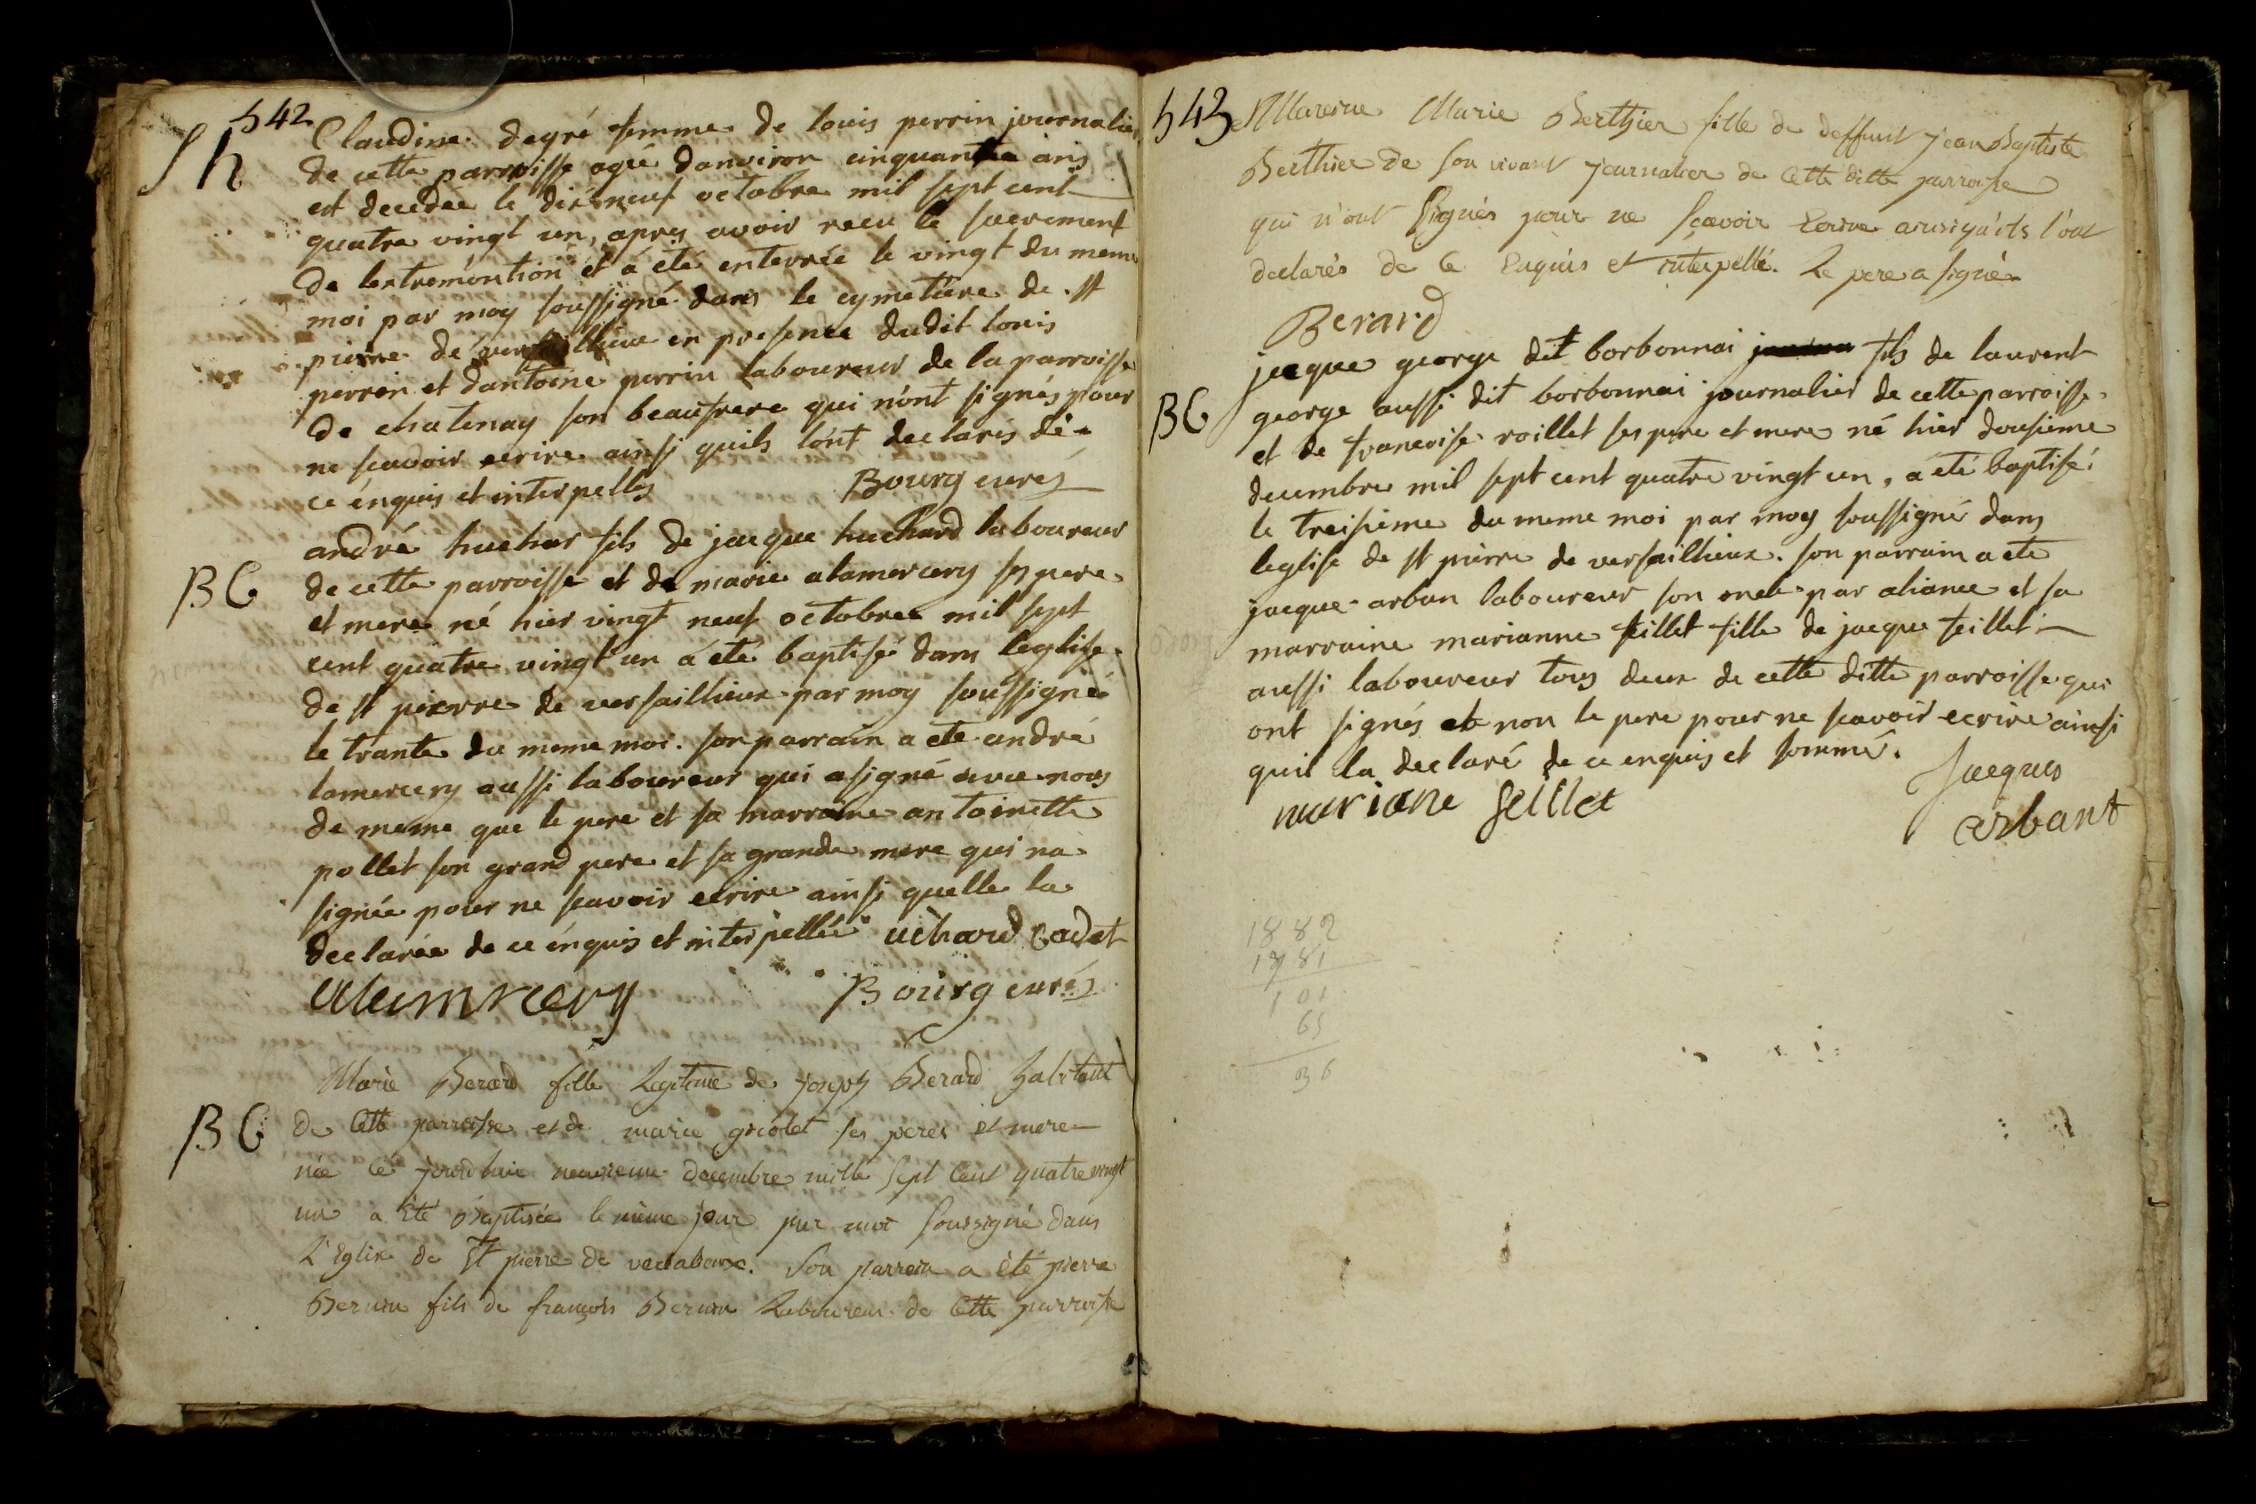 542
Sh
Claudine degré femme de louis perrin journalier
de cette parroisse agée danviron cinquante ans
est decedée le dix neuf octobre mil sept cent
quatre vingt un, apres avoir recu le sacrement
de lextremontion et a été enterrée le vingt du meme
moi par moy soussigné dans le cymetiere de st
pierre de versaillieux en presence dudit louis
perrin et dantoine perrin laboureur de la parroisse
de chatenay son beaufrere qui n'ont signés pour
ne scavoir ecrire ainsi quils lont declarés de
ce enquis et interpellés Bourg curé
BC
andré huchar fils de jacque huchard laboureur
de cette parroisse et de marie alamercery ses pere
et mere né hier vingt neuf octobre mil sept
cent quatre vingt un a été baptisé dans leglise
de st pierre de versaillieux par moy soussigné
le trante du meme moi. son parrain a ete andré
lamercery aussi laboureur qui a signé avec nous
de meme que le pere et sa marraine antoinette
pollet son grand pere et sa grande mere qui na
signée pour ne scavoir ecrire ainsi quelle la
declarée de ce enquis et interpellée uchard cadet
alamrcery Bourg curé
BC
Marie Berard fille Legitime de joseph Berard habitant
de Cette parroisse et de marie griolet ses peres et mere
née ce jourdhui neuvieme decembre mille sept Cent quatre vingt
un a Été Baptisée le même jour par moi soussigné dans
L'Eglise de St pierre de . Son parrein a été pierre
fils de françois Laboureur de Cette parroisse
543
Mareine Marie Berthier fille de deffunt jean Baptiste
Berthier de son vivant journalier de Cette ditte parroisse
qui n'ont signés pour ne sçavoir Ecrire ainsi qu'ils l'ont
declarés de Ce Enquis et interpellé. Le pere a signé
Berard
BC
jacque george dit borbonnai fils de laurent
george aussi dit borbonnai journalier de cette parroisse
et de francoise roillet ses pere et mere né hier dousieme
decembre mil sept cent quatre vingt un, a été baptisé
le treisieme du meme moi par moy soussigné dans
leglise de st pierre de versaillieux. son parrain a ete
jacque arban laboureur son oncle par aliance et sa
marraine marianne feillet fille de jacque feillet
aussi laboureur tous deux de cette ditte parroisse qui
ont signés et non le pere pour ne scavoir ecrire ainsi
quil la declaré de ce enquis et sommé.
mariane feillet
Jacques
arbant
1882
1781
101
65
36